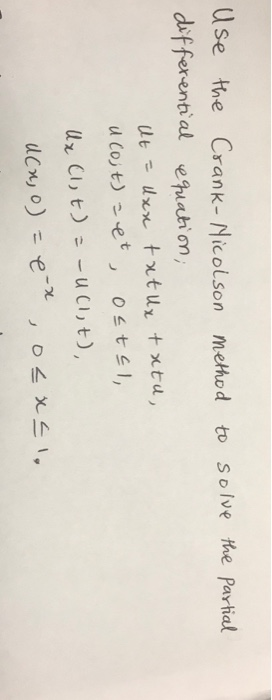 Use the Crank-Nicolson method to solve the partial
differential equation;
ut = uxx + xtux + xtu,
u(0,t) = e^t, 0 ≤ t ≤ 1,
ux(1,t) = -u(1,t),
u(x,0) = e^-x, 0 ≤ x ≤ 1.